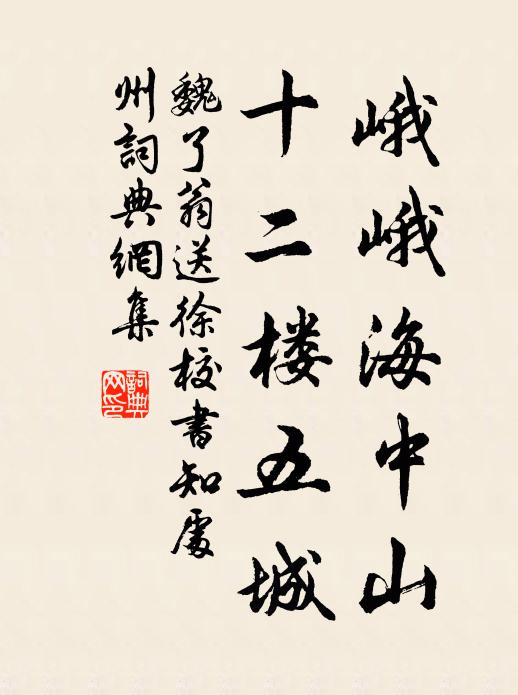 峨峨海中山
十二楼五城
魏了翁送徐校书知處
州詞典網集
詞典
网印